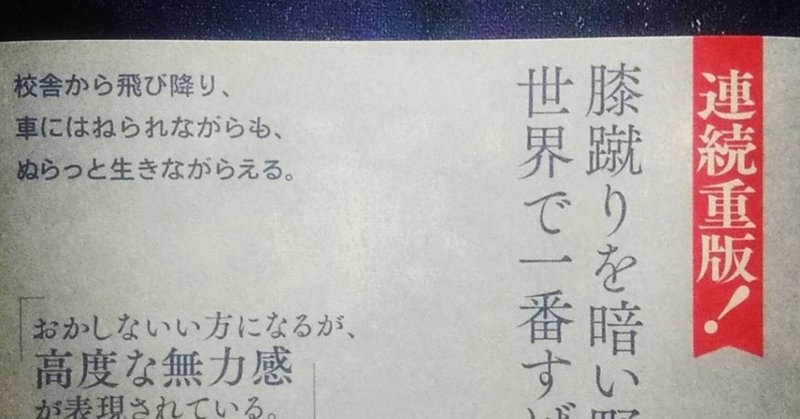 連続重版!
膝蹴りを暗い野
世界で一番すば
校舎から飛び降り、
車にはねられながらも、
ぬらっと生きながらえる。
「おかしないい方になるが、
高度な無力感
が表現されている。